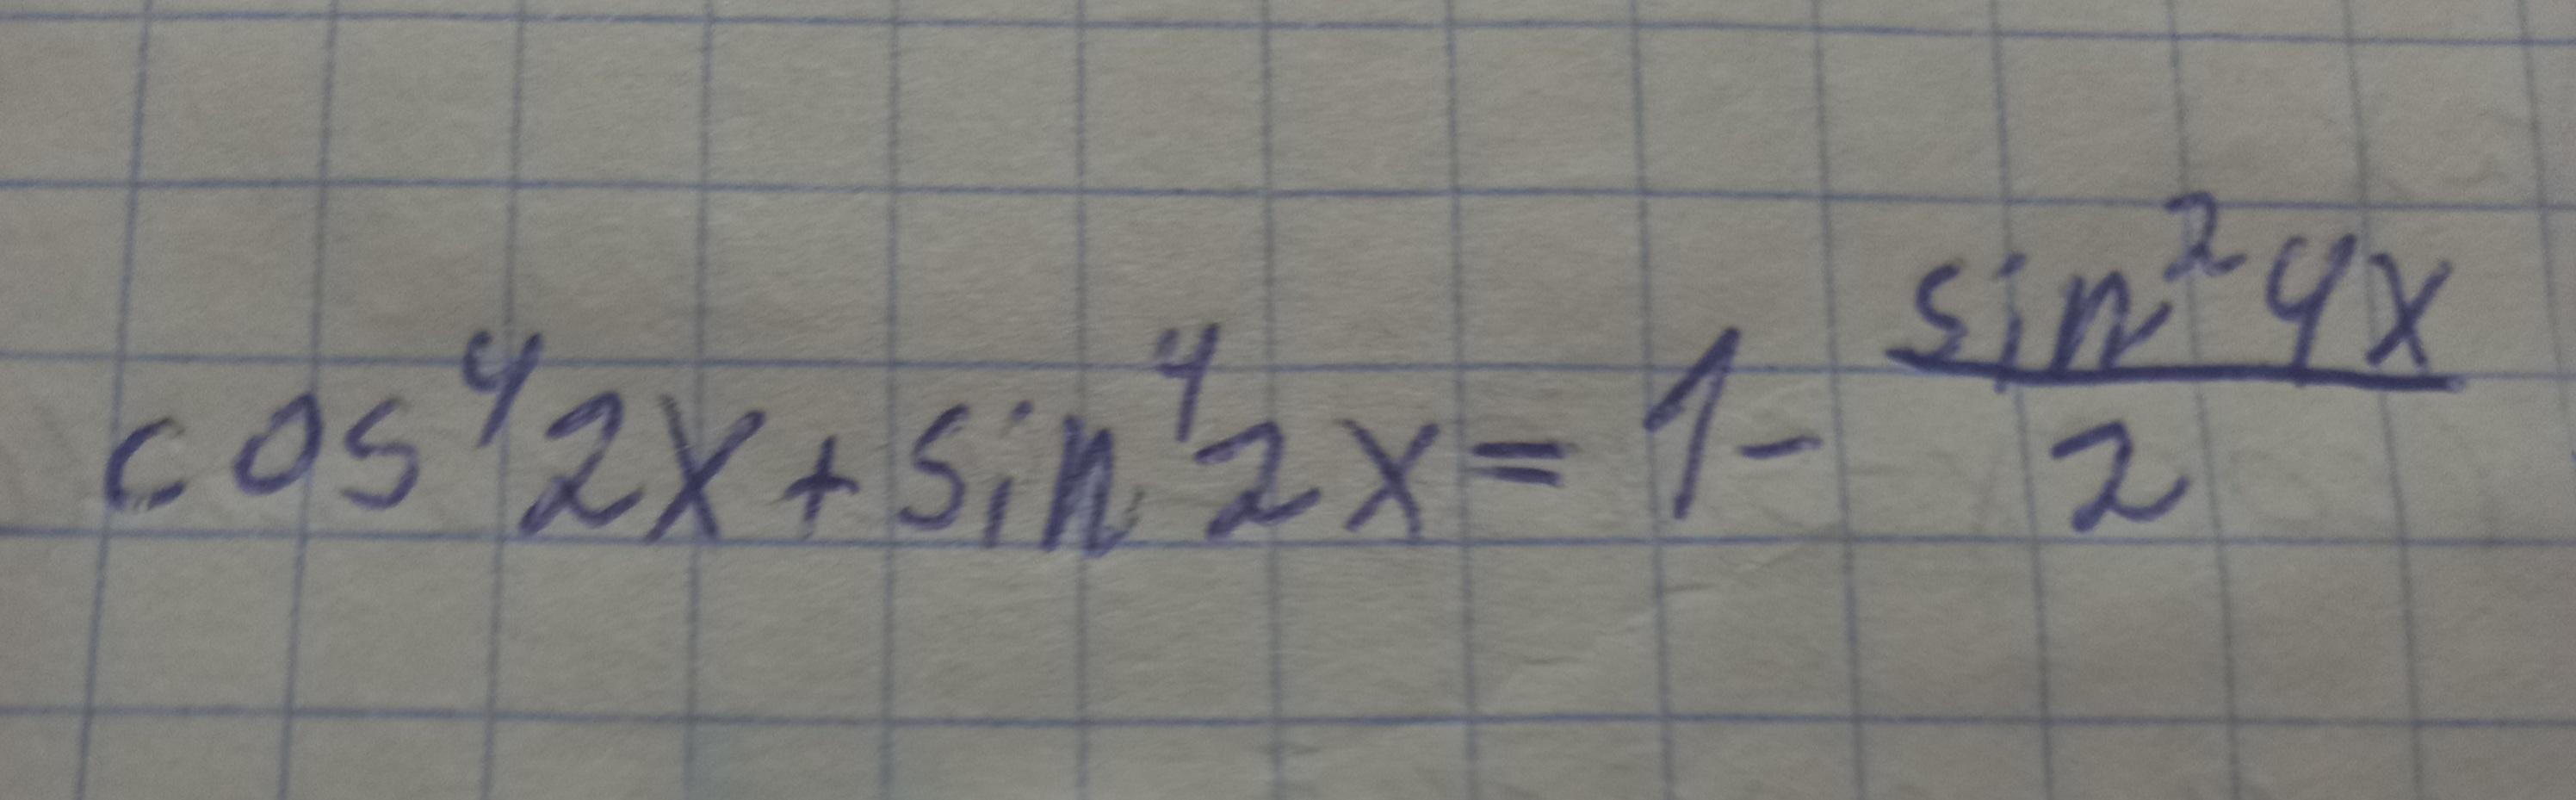 cos⁴2x + sin⁴2x = 1 - sin²4x / 2